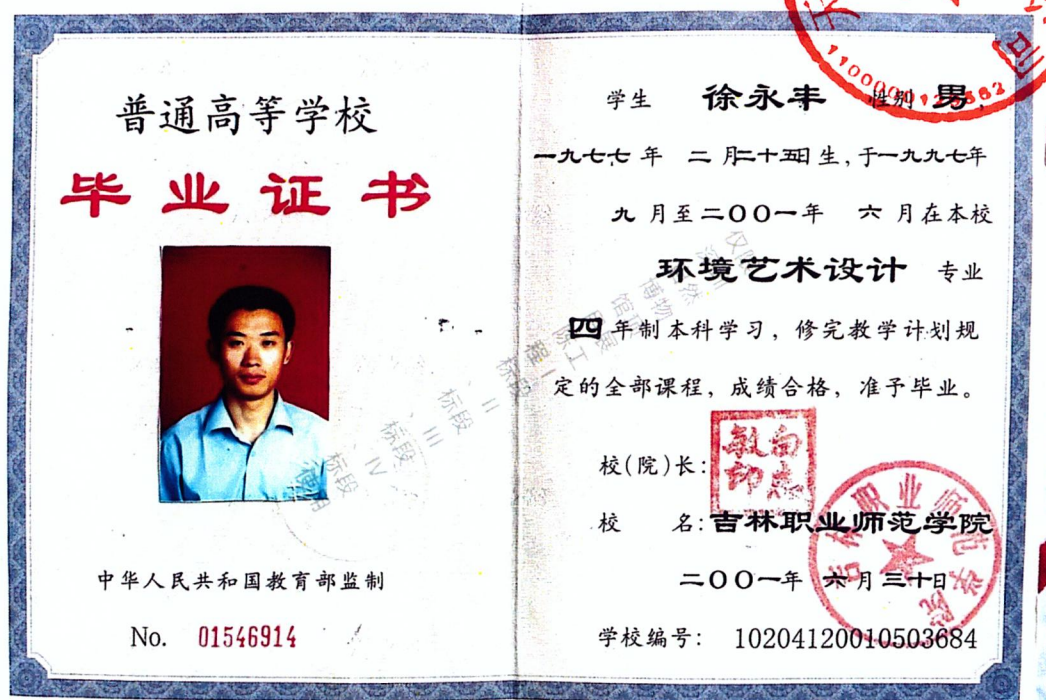 普通高等学校
毕业证书
中华人民共和国教育部监制
No. 01546914
学生 徐永丰 性别 男,
一九七七年 二月二十五日生,于一九九七年
九月至二〇〇一年 六月在本校
环境艺术设计 专业
四年制本科学习,修完教学计划规
定的全部课程,成绩合格,准予毕业。
校(院)长:
校 名:吉林职业师范学院
二〇〇一年 六月三十日
学校编号: 10204120010503684
吉林职业师范学院
标段 II
标段 III
标段 IV